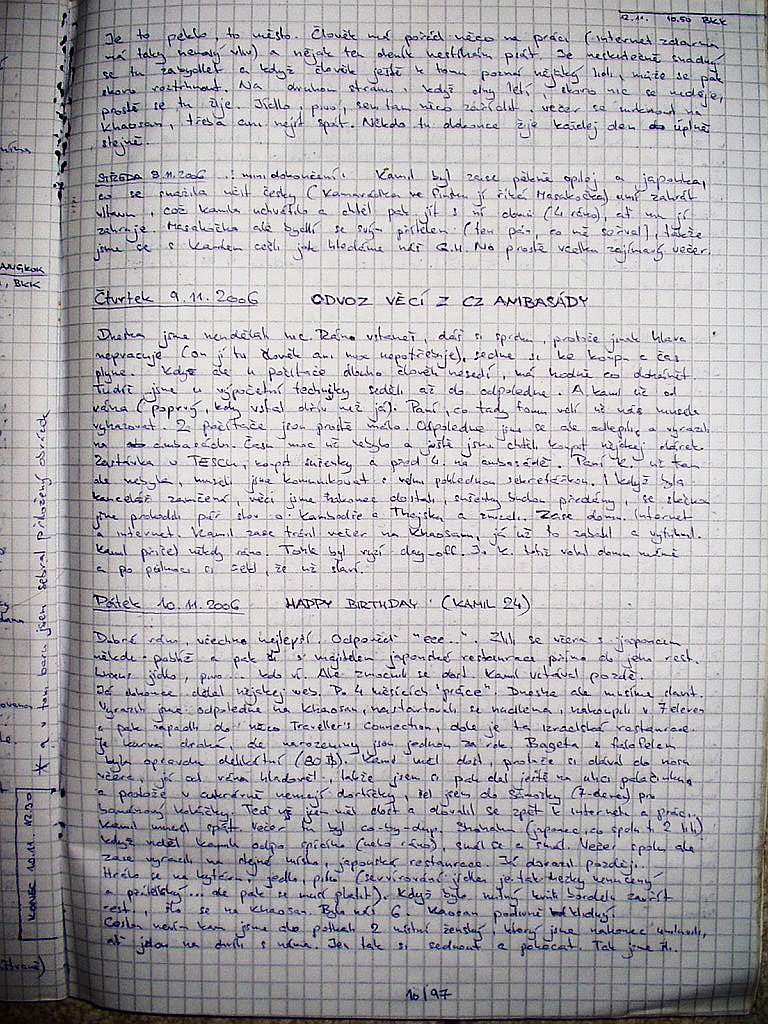 12.11. 10.50 BKK
Je to peklo, to město. Člověk má pořád něco na práci (internet zdarma
má taky nemalý vliv) a nějak ten deník nestíhám psát. Je neskutečně snadný
se tu zabydlet a když člověk ještě k tomu pozná nějaký lidi, může se pak
skoro roztrhnout. Na druhou stranu, když dny letí, skoro nic se neděje,
prostě se tu žije. Jídlo, pivo, sem tam něco zařídit, večer se mrknout na
Khaosan, třeba ani nejít spát. Někdo tu dokonce žije každej den úplně
stejně.
STŘEDA 8.11.2006 : minidokončení: Kamil byl zase pěkně opilej a japonka,
co se snažila učit česky (kamarádka ve Finsku jí říká Masakočka) umí zahrát
vltavu, což Kamila uchvátilo a chtěl pak jít s ní domů (4 ráno), ať mu jí
zahraje. Masakočka ale bydlí se svým přítelem (ten pán, co mě), takže
jsme se s Kamilem jak hledáme náš G.H. No prostě vcelku zajímavý večer.
Čtvrtek 9.11.2006 ODVOZ VĚCÍ Z CZ AMBASÁDY
Dneska jsme nedělali nic. Ráno vstaneš, dáš si sprchu, protože jinak hlava
nepracuje (on jí tu člověk ani moc nepotřebuje), sedne si ke kompu a čas
plyne. Když ale u počítače dlouho člověk nesedí, má hodně co dohánět.
Tudíž jsme u výpočetní techniky seděli až do odpoledne. A kamil už od
rána (poprvý, kdy vstal dřív než já). Paní, co tady tomu velí už nás musela
vyhazovat. 2 počítače jsou prostě málo. Odpoledne jsme se ale odlepili a vyrazili
na ambasádu. Času moc už nebylo a ještě jsme chtěli koupit nějakej dárek.
Zastávka v TESCU, koupit sušenky a před 4. na ambasádě. Paní K. už tam
ale nebyla, museli jsme komunikovat s velmi pohlednou sekretářkou. I když byla
kancelář zamčená, věci jsme nakonec dostali, sušenky budou předány, se slečnou
jsme prohodili pár slov o Kambodže a Thajsku a zmizeli. Zase domů. Internet
a internet. Kamil zase trávil večer na Khaosanu, já už to zabalil a vytuhnul.
Kamil přišel někdy ráno. Tohle byl ryzí day-off. Jo K. totiž volal domů mámě
a po půlnoci si řekl, že už slaví.
Pátek 10.11.2006 HAPPY BIRTHDAY (KAMIL 24)
Dobré ráno, všechno nejlepší. Odpověď "eee..". Zlili se včera s japoncem
někde poblíž a pak šli s majitelem japonské restaurace přímo do jeho rest.
Luxus jídlo, pivo... kdo ví. Ale zmocnil se dort. Kamil vstával pozdě.
Já dokonce dělal nějakej web. Po 4 měsících "práce". Dneska ale musíme slavit.
Vyrazili jsme odpoledne na Khaosan, nastartovali se nudlema, nakoupili v 7eleven
a pak zapadli do něco Traveller's Connection, dole je ta izraelská restaurace.
Je kurva drahá, ale narozeniny jsou jednou za rok. Bageta s falafelem
byla opravdu delikátní (80 B). Kamil měl dost, protože si dával do nosu
včera, já od rána hladověl, takže jsem si pak dal ještě na ulici palačinku
a protože v cukrárně nemají dortíčky, šel jsem do Sámošky (7-eleven) pro
banánový koláčky. Teď už jsem měl dost a dovalil se zpět k internetu a práci.
Kamil musel spát. Večer tu byl co-by-dup. (japonec, co spolu ti 2 lili)
když viděl Kamila odpo spícího (nebo ráno), smál se a smál. Večer spolu ale
zase vyrazili na stejné místo, japonská restaurace. Já dorazil později.
Hrálo se na kytaru, jedlo, pilo (servírování jídla je tak hezky nenucený
a přátelský... ale pak se musí platit). Když bylo nutný kvůli bordelu zavřít
rest, šlo se na Khaosan. Bylo nás 6. Kaosan podivně klidný.
Cestou nevím kam jsme ale potkali 2 místní ženský, který jsme nakonec umluvili,
ať jdou na chvíli s náma. Jen tak si sednout a pokecat. Tak jsme šli..
10/97
* a v tom baru jsem sebral přiložený obrázek
KONEC 10.11. 12.30
ANGKOK
, BKK